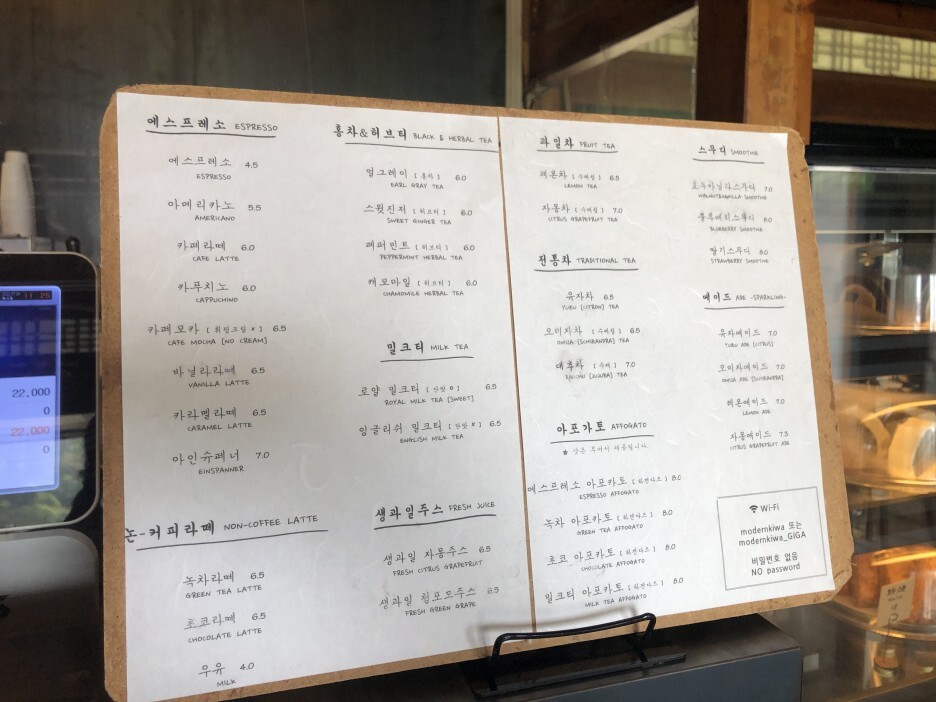 에스프레소 ESPRESSO
에스프레소 4.5
ESPRESSO
아메리카노 5.5
AMERICANO
카페라떼 6.0
CAFE LATTE
카푸치노 6.0
CAPPUCHINO
카페모카 [휘핑크림 x] 6.5
CAFE MOCHA [NO CREAM]
바닐라라떼 6.5
VANILLA LATTE
카라멜라떼 6.5
CARAMEL LATTE
아인슈페너 7.0
EINSPANNER
논-커피라떼 NON-COFFEE LATTE
녹차라떼 6.5
GREEN TEA LATTE
초코라떼 6.5
CHOCOLATE LATTE
우유 4.0
MILK
홍차&허브티 BLACK & HERBAL TEA
얼그레이 [홍차] 6.0
EARL GRAY TEA
스윗진저 [허브티] 6.0
SWEET GINGER TEA
페퍼민트 [허브티] 6.0
PEPPERMINT HERBAL TEA
캐모마일 [허브티] 6.0
CHAMOMILE HERBAL TEA
밀크티 MILK TEA
로얄 밀크티 [단맛 o] 6.5
ROYAL MILK TEA [SWEET]
잉글리쉬 밀크티 [단맛 x] 6.5
ENGLISH MILK TEA
생과일주스 FRESH JUICE
생과일 자몽주스 6.5
FRESH CITRUS GRAPEFRUIT
생과일 청포도주스 6.5
FRESH GREEN GRAPE
과일차 FRUIT TEA
레몬차 [수제청] 6.5
LEMON TEA
자몽차 [수제청] 7.0
CITRUS GRAPEFRUIT TEA
전통차 TRADITIONAL TEA
유자차 6.5
YUJU [CITRON] TEA
오미자차 [수제청] 6.5
OMIJA [SCHISANDRA] TEA
대추차 [수제] 7.0
[JUJUBA] TEA
아포가토 AFFOGATO
에스프레소 아포카토 [하겐다즈] 8.0
ESPRESSO AFFOGATO
녹차 아포카토 [하겐다즈] 8.0
GREEN TEA AFFOGATO
초코 아포카토 [하겐다즈] 8.0
CHOCOLATE AFFOGATO
밀크티 아포카토 [하겐다즈] 8.0
MILK TEA AFFOGATO
스무디 SMOOTHIE
호두바닐라스무디 7.0
WALNUT&VANILLA SMOOTHIE
블루베리스무디 8.0
BLUEBERRY SMOOTHIE
딸기스무디 8.0
STRAWBERRY SMOOTHIE
에이드 ADE -SPARKLING-
유자에이드 7.0
YUJU ADE [CITRUS]
오미자에이드 7.0
OMIJA ADE [SCHISANDRA]
레몬에이드 7.0
LEMON ADE
자몽에이드 7.5
CITRUS GRAPEFRUIT ADE
Wi-Fi
modernkiwa 또는
modernkiwa_GIGA
비밀번호 없음
NO password
11 25
22,000
0
22,000
0